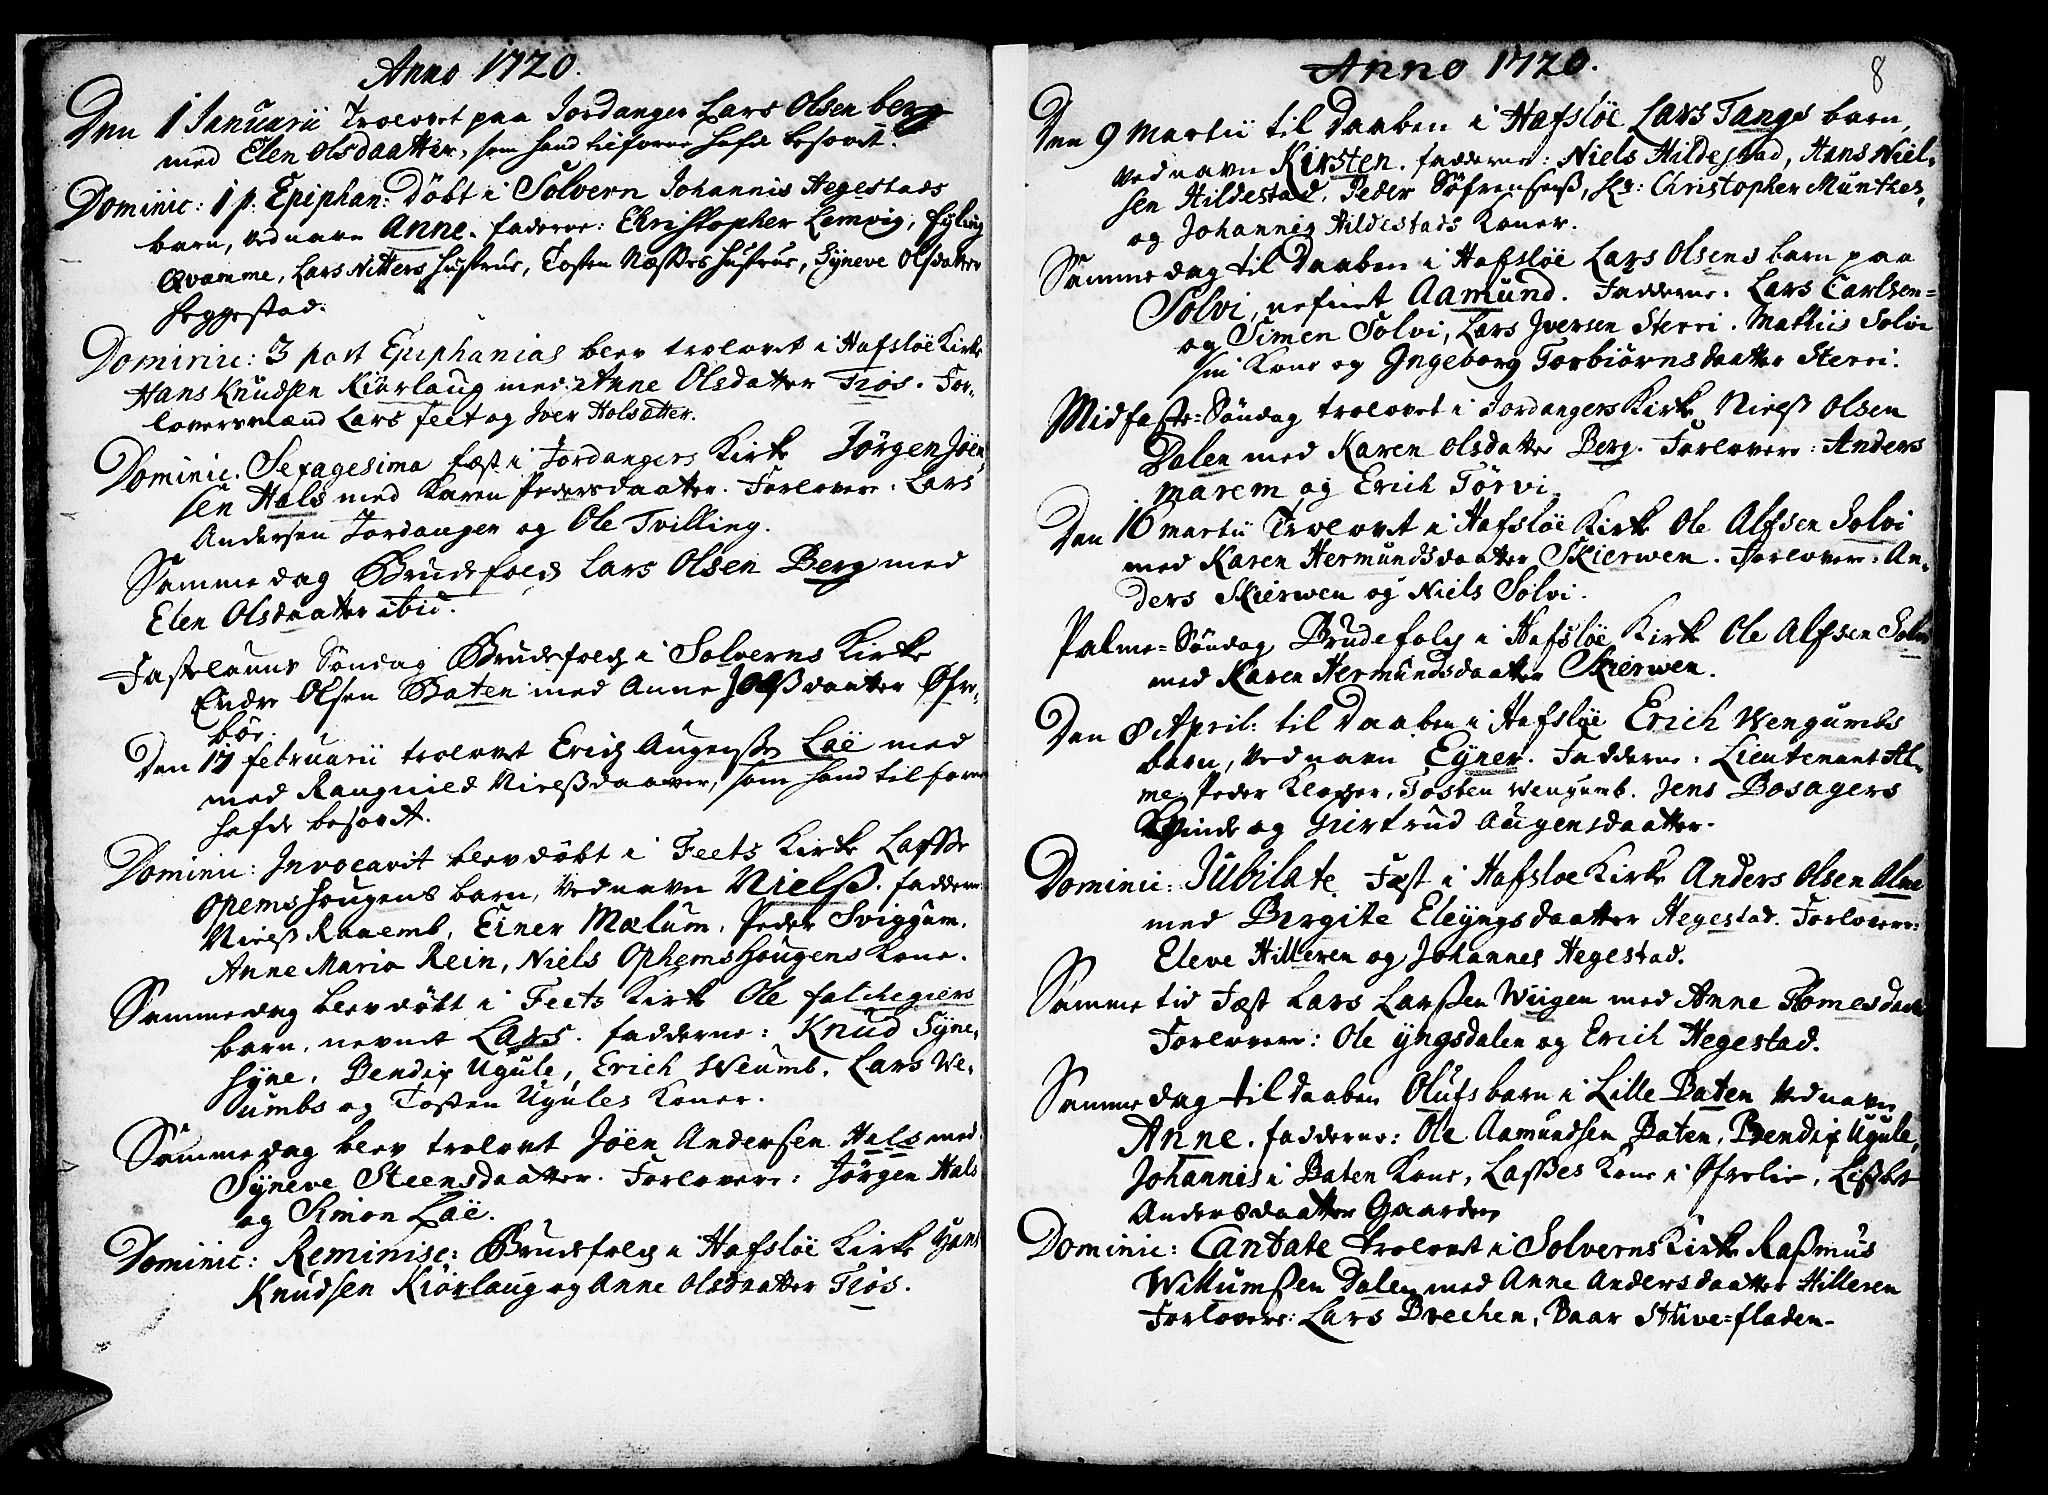 Anno 1720.
Den 1 Januarii Trolovet paa Jordanger Lars Olsen berg
med Elen Olsdaatter, som hand tilforne hafde besovet.
Dominic: 1 p. Epiphan: döbt i Solvern Johannis Hegestads
barn, ved navn Anne. faderne: Christopher Lemvig,
Qvamme, Lars Nitters Hustrue, Tosten Næsses Hustrue, Syneve Olsdatter
Heggestad.
Dominic: 3 post Epiphanias blev trolovet i Hafslöe Kirke
Hans Knudsen Kiörlaug med Anne Olsdatter Tiös. For-
loversmænd Lars feet og Iver Holsætter.
Dominic. Sexagesima fæst i Jordangers Kirke Jörgen Jöen-
sen Hals med Karen Pedersdaatter. Forlovere: Lars
Andersen Jordanger og Ole Tvilling.
Samme dag Brudefolck Lars Olsen Berg med
Elen Olsdaatter ibid.
Fastelauns Söndag Brudefolck i Solverns Kirke
Endre Olsen Baten med Anne daatter Öfre-
bör.
Den 17 februarii trolovet Erich Augensen Laë med
med Raugnild Nielsdaatter, som hand tilforne
hafde besovet.
Dominic: Invocavit blev döbt i Feets Kirke Lasse
Opems Hougens barn, ved navn Niels. fadderne:
Niels Raaemb, Einer Mælum, Peder Sviggum,
Anne Maria Rein, Niels Ophems Hougens Kone.
Samme dag blev döbt i Feets Kirke Ole faldegiers
barn, nevnet Lars. fadderne: Knud Syne-
Hyne, Bendix Ugule, Erich Weumb, Lars We-
umbs og Tosten Ugules Koner.
Samme dag blev trolovet Jöen Andersen Hals med
Syneve Steensdaatter. Forlovere: Jörgen Hals
og Simon Laë.
Dominic: Reminisc: Brudefolck i Hafslöe Kirke Hans
Knudsen Kiörlaug og Anne Olsdaatter Tiös.
Anno 1720.
8
Den 9 Martii til Daaben i Hafslöe Lars Tangs barn,
ved navn Kirsten. fadderne: Niels Hildestad, Hans Niel-
sen Hildestad, Peder Söfrensens, Christopher Munches,
og Johannis Hildestads Koner.
Samme dag til Daaben i Hafslöe Lars Olsens barn paa
Solvi, nefnet Aamund. Fadderne: Lars Carlsen
og Simen Solvi, Lars Iversen Sterri. Mathiis Solvi
sin Kone og Ingeborg Torbiörnsdaatter Sterri.
Midfaste-Söndag trolovet i Jordangers Kirke Niels Olsen
Dalen med Karen Olsdatter Berg. Forlovere: Anders
Marem og Erich Törvi.
Den 16 Martii Trolovet i Hafslöe Kirke Ole Alfsen Solvi
med Karen Hermundsdaatter Skierwen. Forlovere: An-
ders Skierwen og Niels Solvi.
Palme-Söndag Brudefolck i Hafslöe Kirke Ole Alfsen Solvi
med Karen Hermundsdaatter Skierwen.
Den 8 April: til Daaben i Hafslöe Erich Wengumbs
barn, ved navn Eyner. Fadderne: Lieutenant Al-
me, Peder Tosten Wengumb. Jens Bosagers
Qvinde og Giertrud Augensdaatter.
Dominic: Jubilate Fæst i Hafsloe Kirke Anders Olsen Alme
med Bergite Eleyngsdaatter Hegestad. Forlovere:
Eleve Hilleren og Johannes Hegestad.
Samme tid Fæst Lars Larsen Wiigen med Anne Tomesdaatter
Forlovere: Ole yngsdalen og Erich Hegestad.
Samme dag til daaben Olufs barn i Lille Baten ved navn
Anne. fadderne: Ole Aamundsen Baten, Bendix Ugule,
Johannis i Baten Kone, Lasses Kone i Öfrelie, Lisbet
Andersdaatter Gaarden
Dominic: Cantate trolovet i Solverns Kirke Rasmus
Willumsen Dalen med Anne Andersdaatter Hilleren
Forlovere: Lars Brechen, Baar Stuve-fladen.